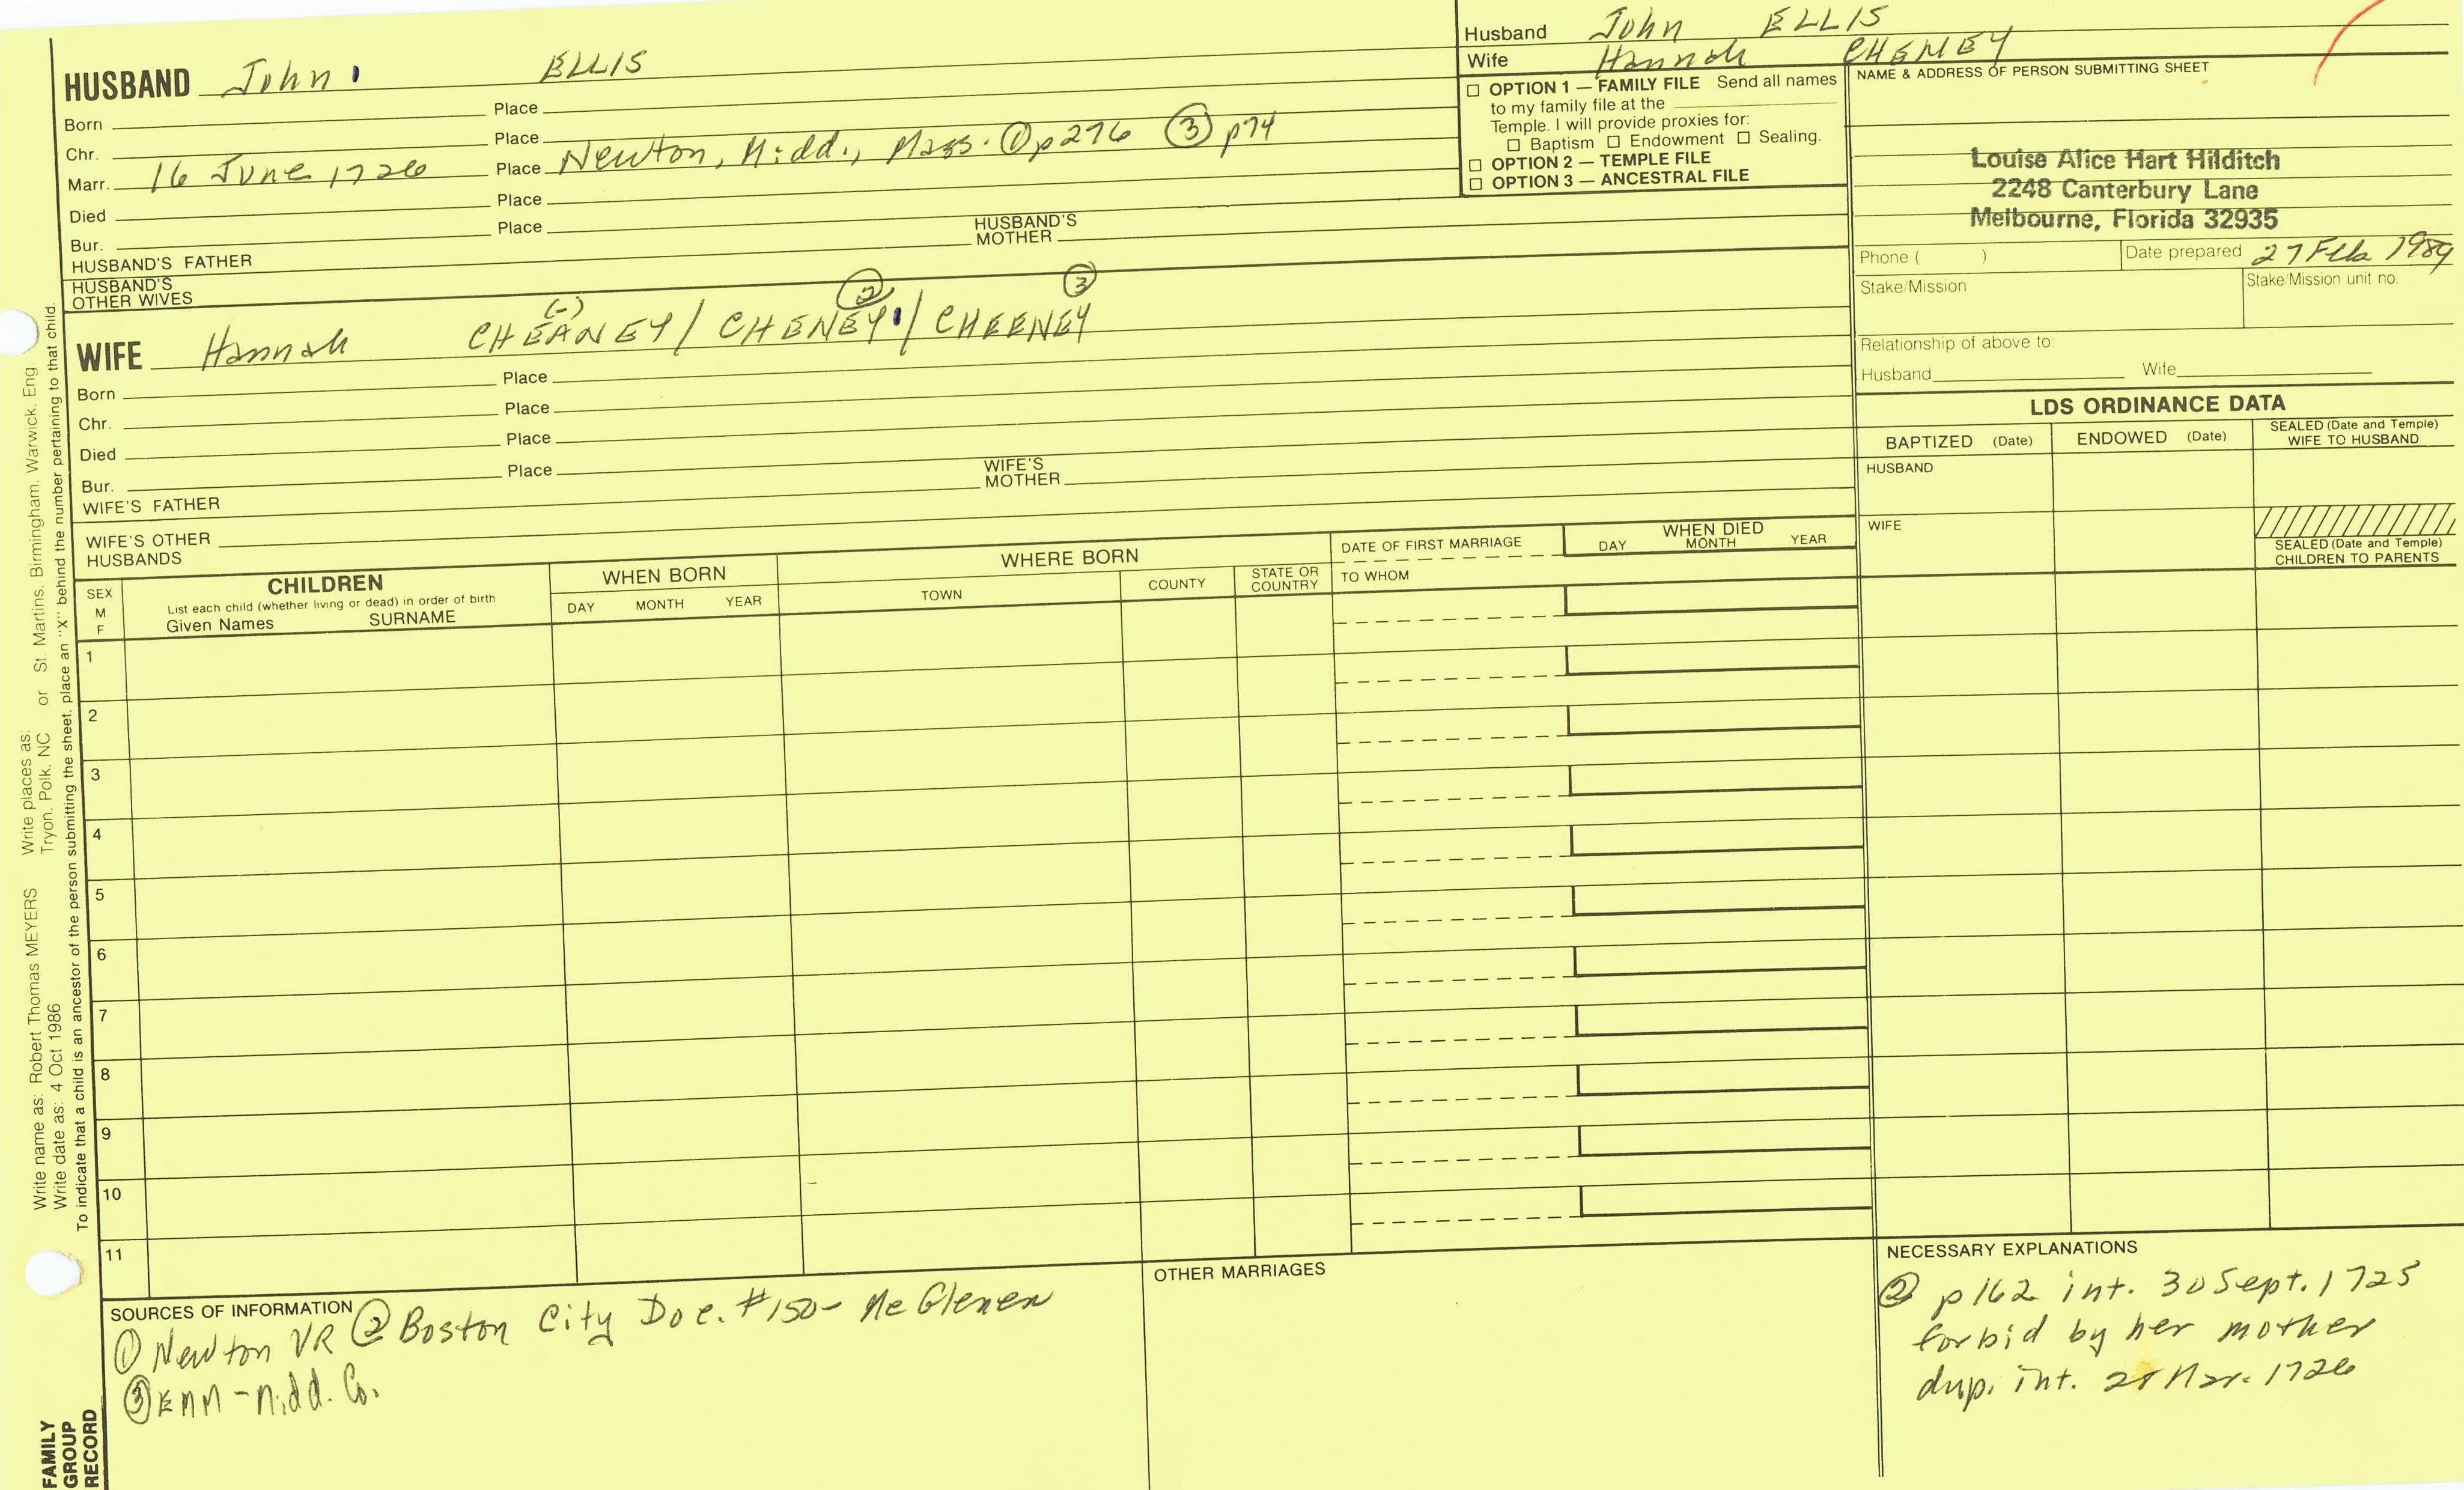 Husband John ELLIS
Wife Hannah CHENEY
HUSBAND John ELLIS
Born Place
Chr. Place
Marr. 16 June 1726 Place Newton, Midd., Mass. ① p276 ③ p74
Died Place
Bur. Place
HUSBAND'S FATHER HUSBAND'S MOTHER
HUSBAND'S OTHER WIVES
(-) ② ③
WIFE Hannah CHEANEY / CHENEY / CHEENEY
Born Place
Chr. Place
Died Place
Bur. Place
WIFE'S FATHER WIFE'S MOTHER
WIFE'S OTHER HUSBANDS
☐ OPTION 1 — FAMILY FILE Send all names
to my family file at the
Temple. I will provide proxies for:
☐ Baptism ☐ Endowment ☐ Sealing.
☐ OPTION 2 — TEMPLE FILE
☐ OPTION 3 — ANCESTRAL FILE
NAME & ADDRESS OF PERSON SUBMITTING SHEET
Louise Alice Hart Hilditch
2248 Canterbury Lane
Melbourne, Florida 32935
Phone ( ) Date prepared 27 Feb 1989
Stake/Mission Stake/Mission unit no.
Relationship of above to:
Husband Wife
LDS ORDINANCE DATA
BAPTIZED (Date) ENDOWED (Date) SEALED (Date and Temple) WIFE TO HUSBAND
HUSBAND
WIFE
SEALED (Date and Temple)
CHILDREN TO PARENTS
SEX
M
F
CHILDREN
List each child (whether living or dead) in order of birth
Given Names SURNAME
WHEN BORN
DAY MONTH YEAR
WHERE BORN
TOWN COUNTY STATE OR COUNTRY
DATE OF FIRST MARRIAGE
TO WHOM
WHEN DIED
DAY MONTH YEAR
1
2
3
4
5
6
7
8
9
10
11
SOURCES OF INFORMATION
① Newton VR ② Boston City Doc. #150- McGlenen
③ EMM - Midd. Co.
OTHER MARRIAGES
NECESSARY EXPLANATIONS
② p162 int. 30 Sept. 1725
forbid by her mother
dup. int. Mar. 1726
Write name as: Robert Thomas MEYERS Write places as: Tryon, Polk, NC or St. Martins, Birmingham, Warwick, Eng
Write date as: 4 Oct 1986
To indicate that a child is an ancestor of the person submitting the sheet, place an "X" behind the number pertaining to that child.
FAMILY
GROUP
RECORD